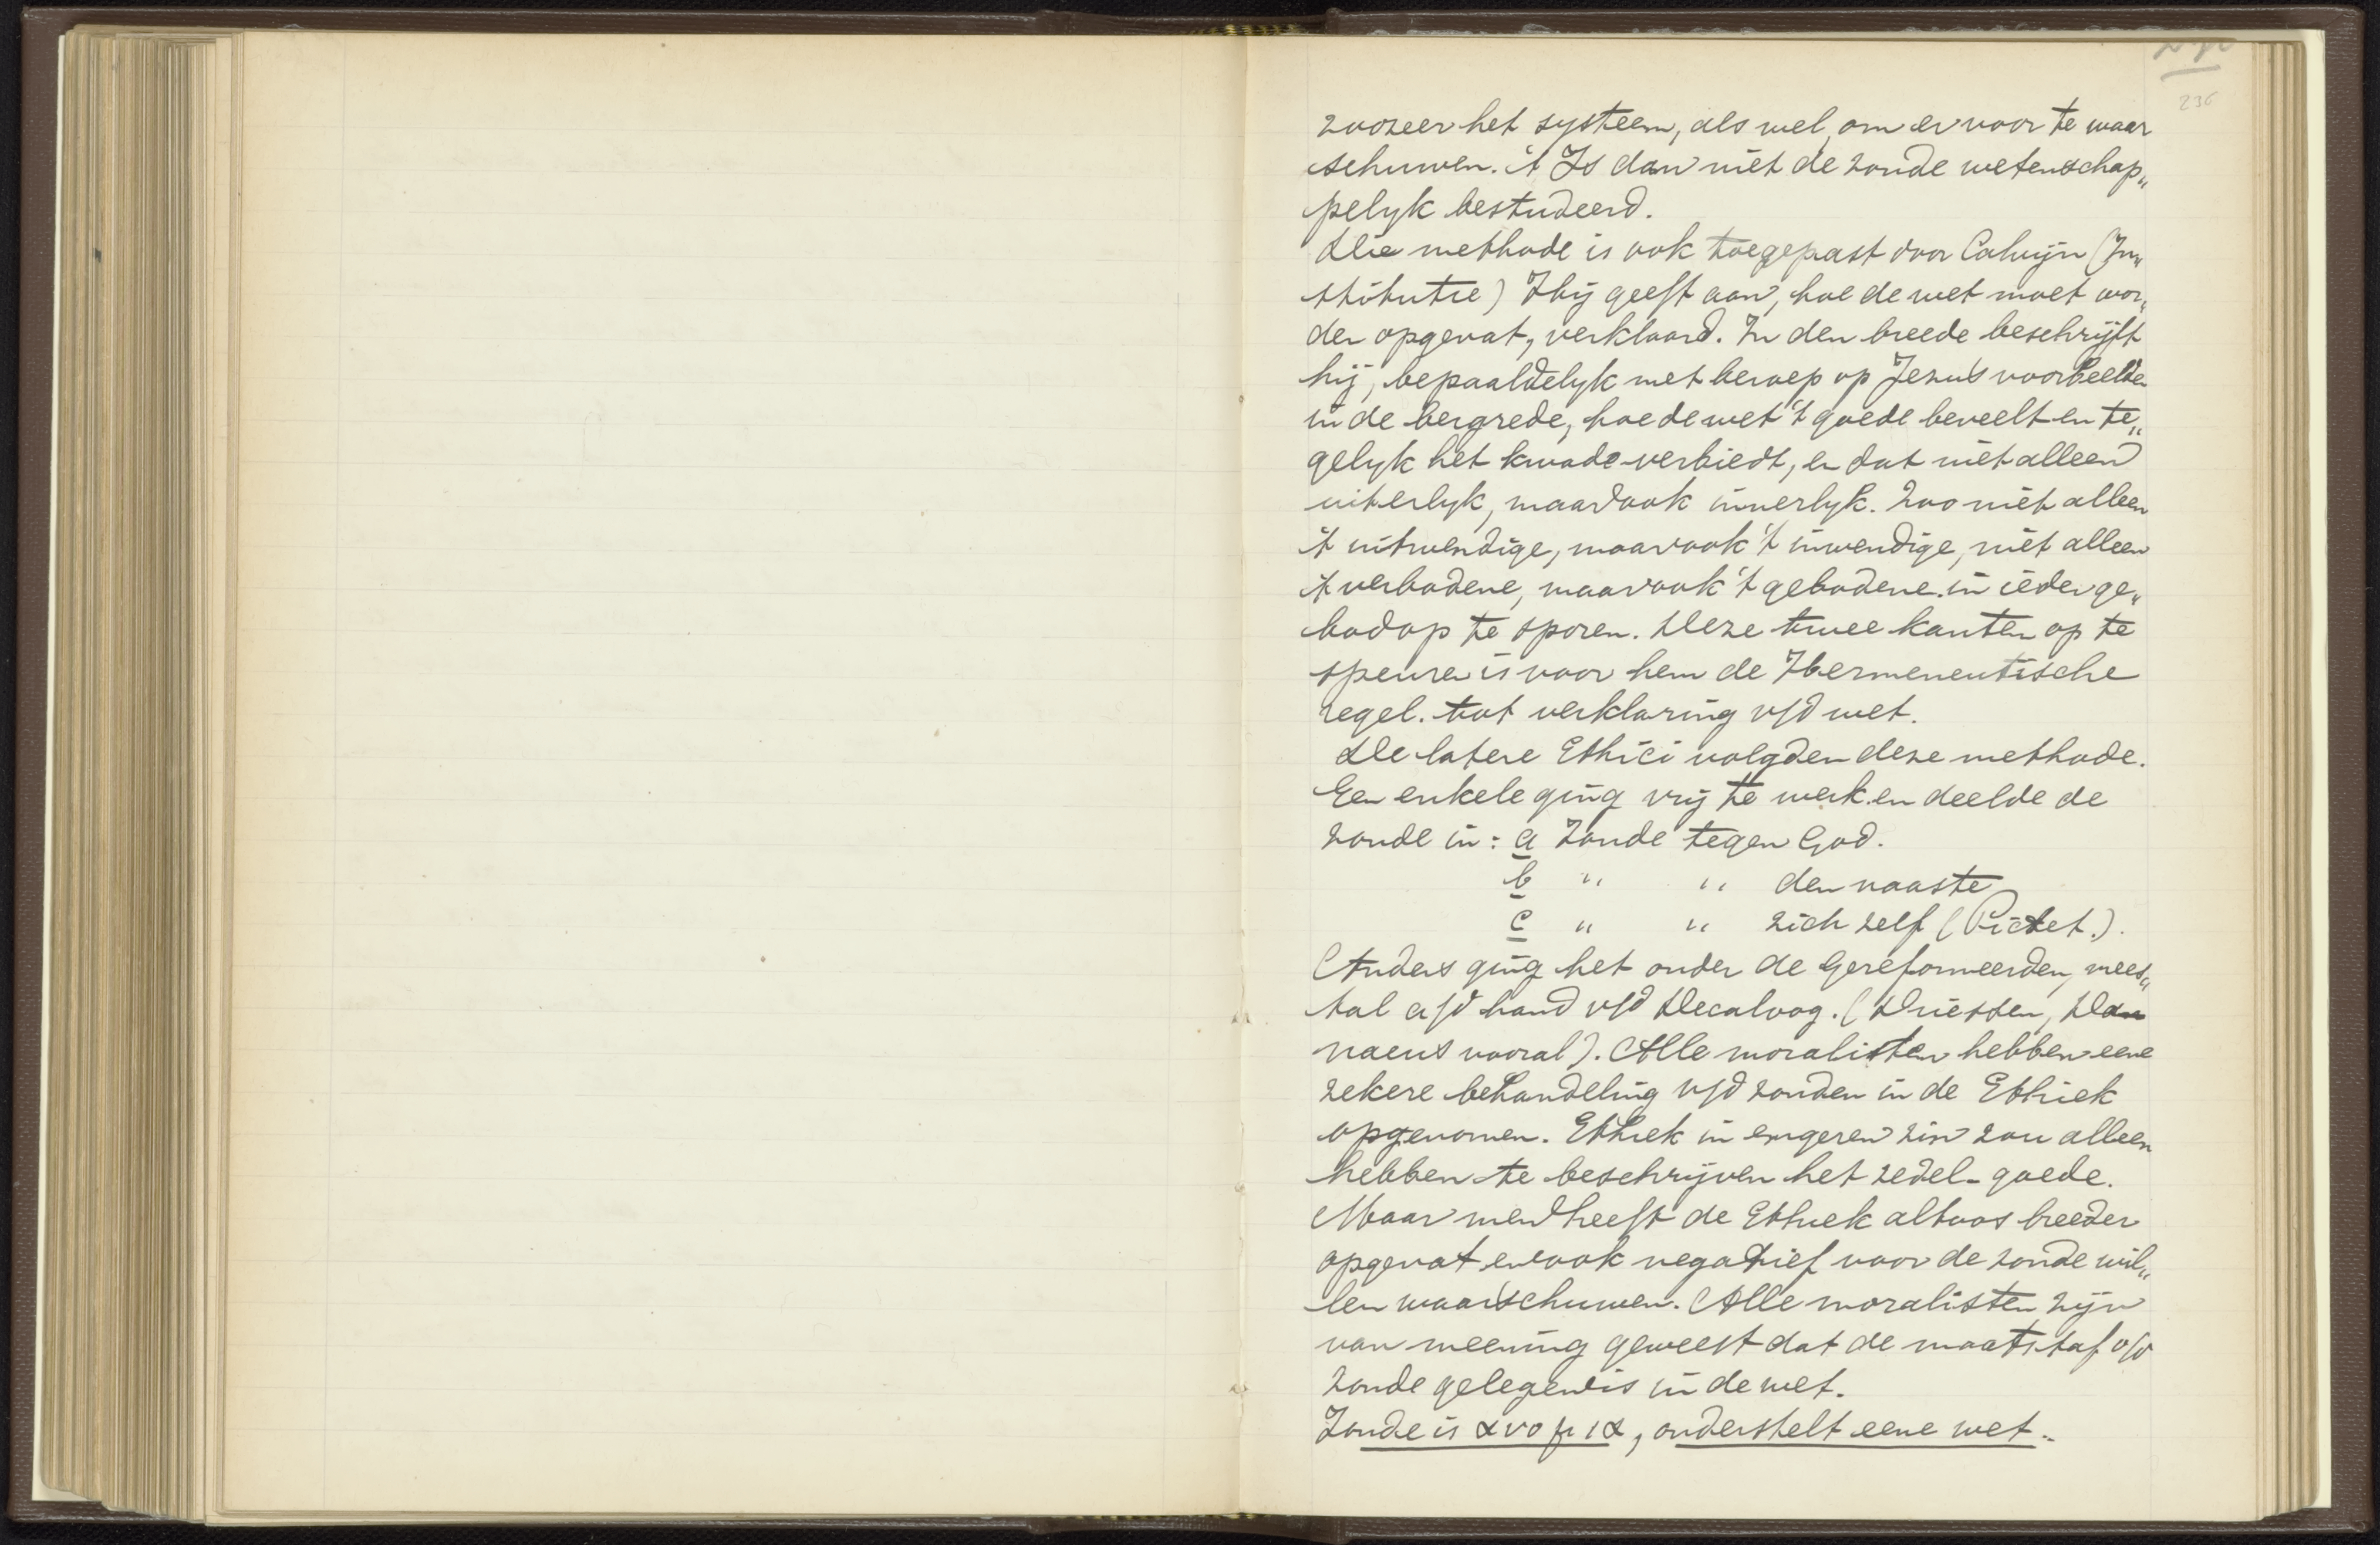 236
zoozeer het systeem, als wel, om er voor te waar
schuwen. 't Is dan niet de zonde wetenschap„
pelyk bestudeerd.
Die methode is ook toegepast door Calvijn (In„
stitutie) Hij geeft aan, hoe de wet moet wor„
den opgevat, verklaard. In den breede beschrijft
hij, bepaaldelyk met beroep op Jezus voorbeelden
in de bergrede, hoe de wet 't goede beveelt en te„
gelyk het kwade verbiedt, en dat niet alleen
uiterlyk, maar ook innerlyk. Zoo niet alleen
't uitwendige, maar ook 't inwendige, niet alleen
't verbodene, maar ook 't gebodene in ieder ge„
bod op te sporen. Deze twee kanten op te
speuren is voor hem de Hermeneutische
regel. tot verklaring v/d wet.
De latere Ethici volgden deze methode.
Een enkele ging vrij te werk en deelde de
zonde in: a Zonde tegen God.
b " " den naaste
c " " zich zelf (Pictet.).
Anders ging het onder de Gereformeerden, mees„
tal a/d hand v/d Decaloog. (Driessen, Da
naeus vooral). Alle moralisten hebben eene
zekere behandeling v/d zonden in de Ethiek
opgenomen. Ethiek in engeren zin zou alleen
hebben te beschrijven het zedel-goede.
Maar men heeft de Ethiek altoos breeder
opgevat en ook negatief voor de zonde wil„
len waarschuwen. Alle moralisten zijn
van meening geweest dat de maatstaf v/d
zonde gelegen is in de wet.
Zonde is ανομια, onderstelt eene wet.